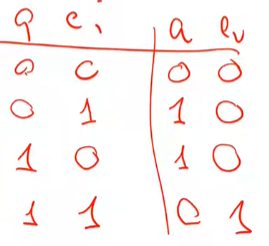 q ci a ev
0 0 0 0
0 1 1 0
1 0 1 0
1 1 0 1